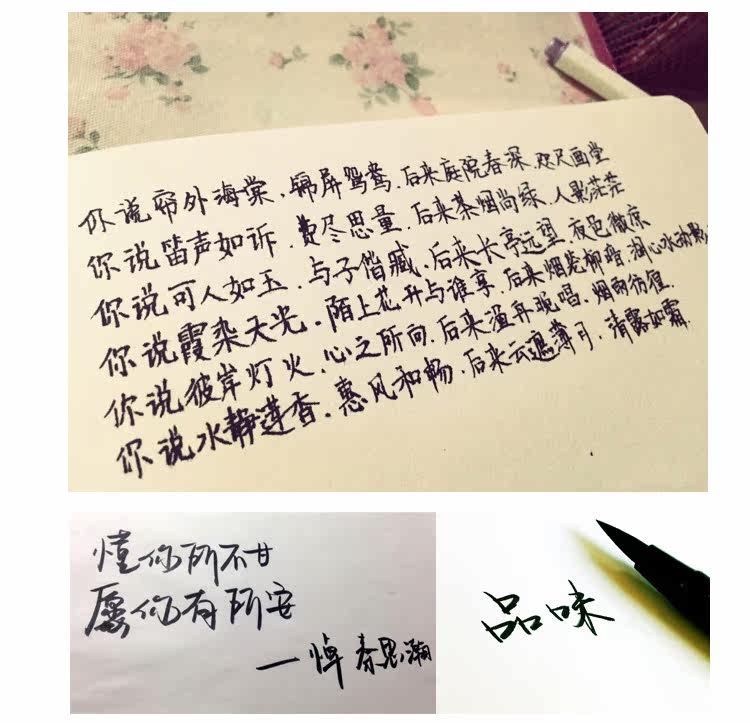 你说帘外海棠,锦屏鸳鸯,后来庭院春深,咫尺画堂
你说笛声如诉,费尽思量,后来茶烟尚绿,人影茫茫
你说可人如玉,与子偕臧,后来长亭远望,夜色微凉
你说霞染天光,陌上花开与谁享,后来烟笼柳暗,湖心水动影
你说彼岸灯火,心之所向,后来渔舟晚唱,烟雨彷徨
你说水静莲香,惠风和畅,后来云遮薄月,清露如霜
懂你所不甘
愿你有所安
—悼秦思瀚
品味